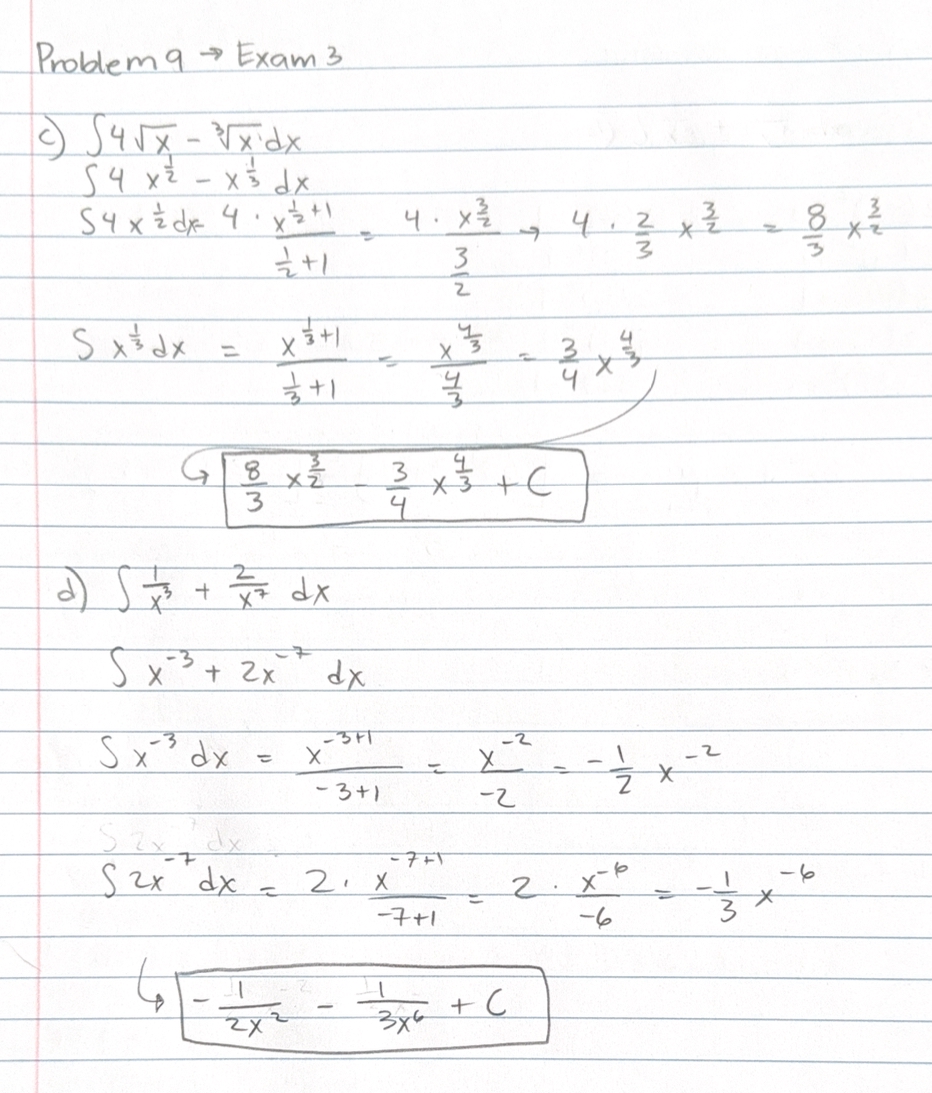 Problem 9 → Exam 3
c) ∫4√x - ∛x dx
∫4 x^(1/2) - x^(1/3) dx
∫4x^(1/2) dx = 4 · x^(1/2+1)/(1/2+1) = 4 · x^(3/2)/(3/2) → 4 · 2/3 x^(3/2) = 8/3 x^(3/2)
∫x^(1/3) dx = x^(1/3+1)/(1/3+1) = x^(4/3)/(4/3) = 3/4 x^(4/3)
↪ 8/3 x^(3/2) - 3/4 x^(4/3) + C
d) ∫ 1/x^3 + 2/x^7 dx
∫ x^-3 + 2x^-7 dx
∫ x^-3 dx = x^(-3+1)/(-3+1) = x^-2/-2 = -1/2 x^-2
∫ 2x^-7 dx = 2 · x^(-7+1)/(-7+1) = 2 · x^-6/-6 = -1/3 x^-6
↪ -1/(2x^2) - 1/(3x^6) + C